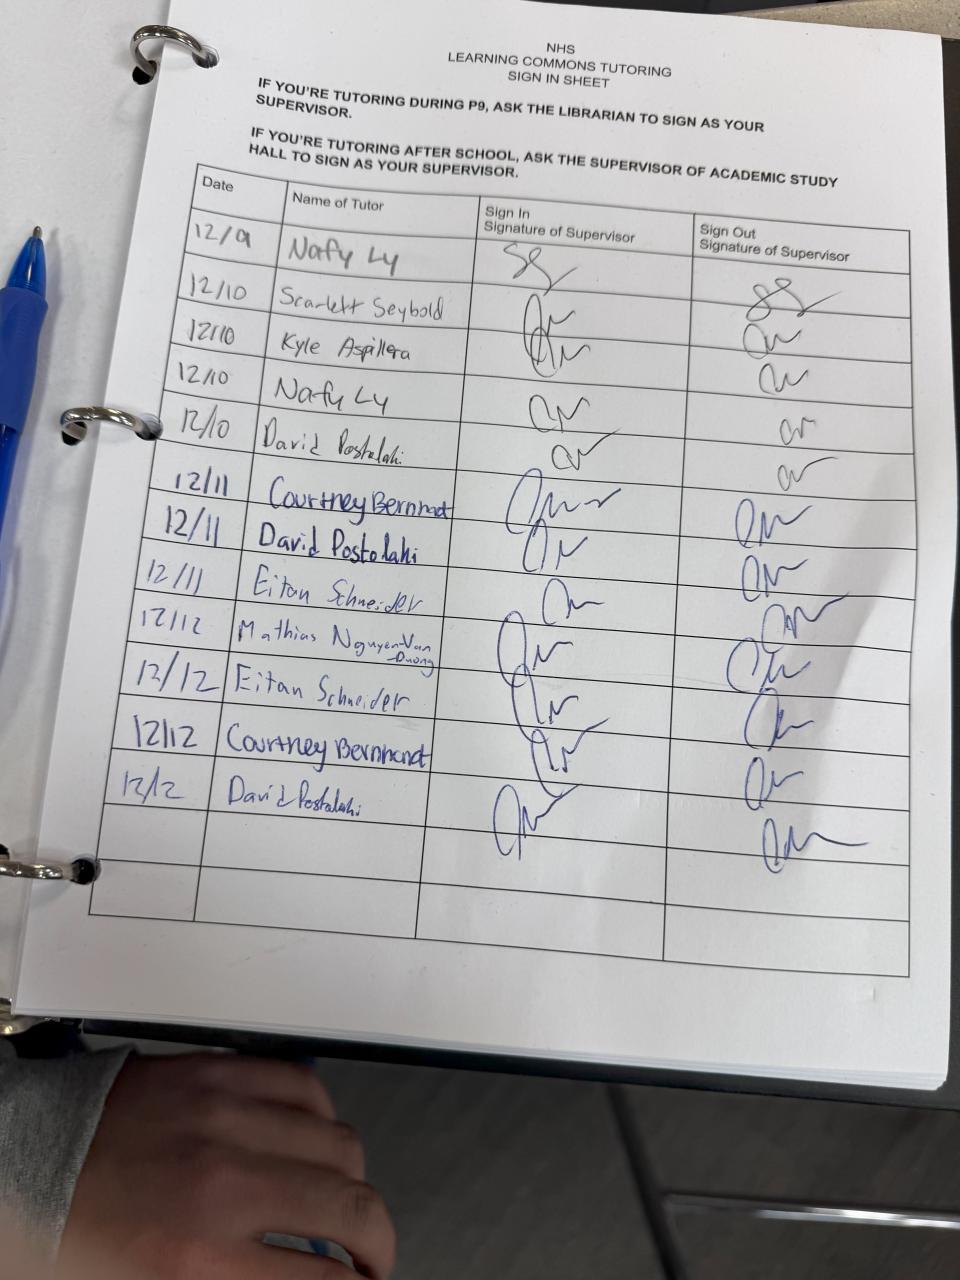 NHS
LEARNING COMMONS TUTORING
SIGN IN SHEET
IF YOU'RE TUTORING DURING P9, ASK THE LIBRARIAN TO SIGN AS YOUR
SUPERVISOR.
IF YOU'RE TUTORING AFTER SCHOOL, ASK THE SUPERVISOR OF ACADEMIC STUDY
HALL TO SIGN AS YOUR SUPERVISOR.
Date Name of Tutor Sign In Sign Out
Signature of Supervisor Signature of Supervisor
12/9 Nafy Ly
12/10 Scarlett Seybold
12/10 Kyle Aspillera
12/10 Nafy Ly
12/10 David Postolahi
12/11 Courtney Bernhardt
12/11 David Postolahi
12/11 Eitan Schneider
12/12 Mathias Nguyen-Van
-Duong
12/12 Eitan Schneider
12/12 Courtney Bernhardt
12/12 David Postolahi